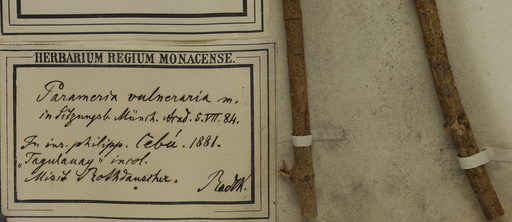 HERBARIUM REGIUM MONACENSE.
Parameria vulneraria m.
in Sitzungsb. Münch. Akad. 5. VII. 84.
In ins. philipp. Cebú. 1881.
"Tagulauay" incol.
Misit Rothdauscher.
Radlk.